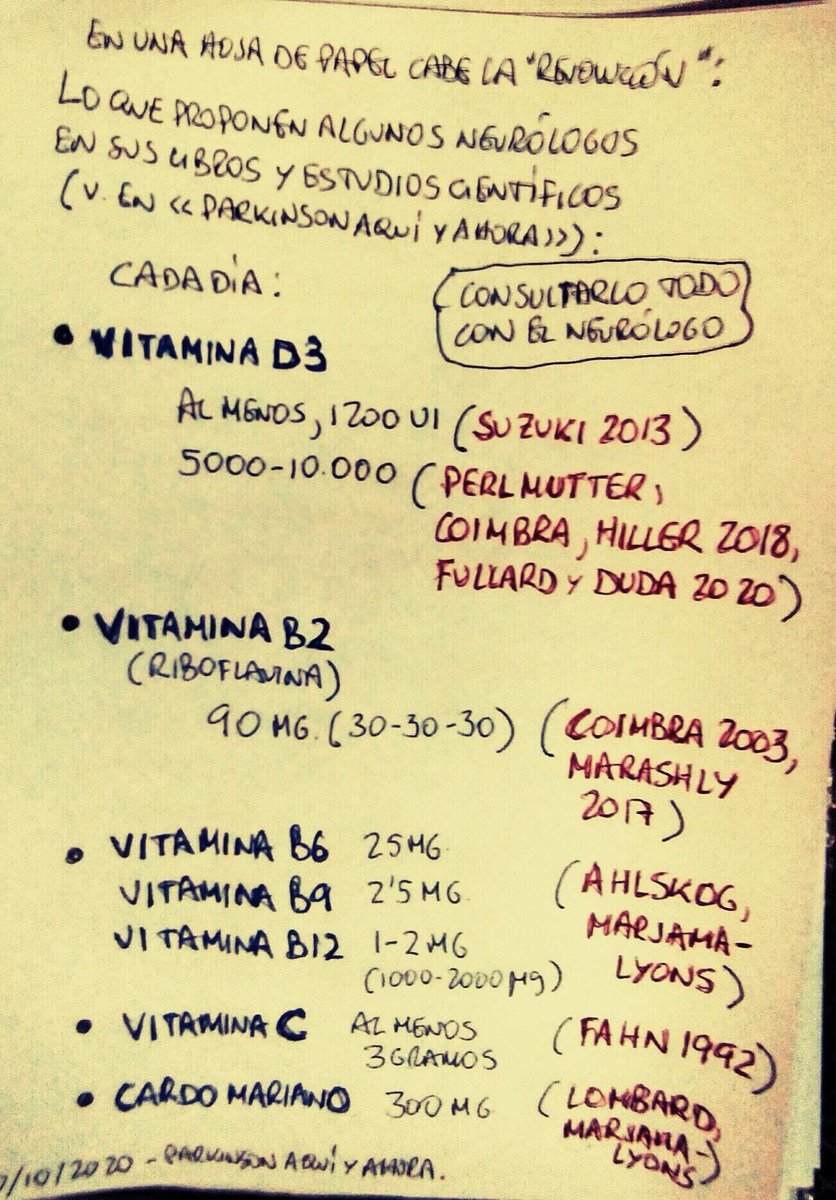 EN UNA HOJA DE PAPEL CABE LA "REVOLUCIÓN":
LO QUE PROPONEN ALGUNOS NEURÓLOGOS
EN SUS LIBROS Y ESTUDIOS CIENTÍFICOS
(V. EN «PARKINSON AQUÍ Y AHORA»):
CADA DÍA:
(CONSULTARLO TODO
CON EL NEURÓLOGO)
• VITAMINA D3
AL MENOS, 1200 UI (SUZUKI 2013)
5000-10.000 (PERLMUTTER,
COIMBRA, HILLER 2018,
FULLARD Y DUDA 2020)
• VITAMINA B2
(RIBOFLAVINA)
90 MG. (30-30-30) (COIMBRA 2003,
MARASHLY
2017)
• VITAMINA B6 25 MG
VITAMINA B9 2'5 MG
VITAMINA B12 1-2 MG
(1000-2000 µg)
(AHLSKOG,
MARJAMA-
LYONS)
• VITAMINA C AL MENOS
3 GRAMOS
(FAHN 1992)
• CARDO MARIANO 300 MG (LOMBARD,
MARJAMA-
LYONS)
/10/2020 - PARKINSON AQUÍ Y AHORA.